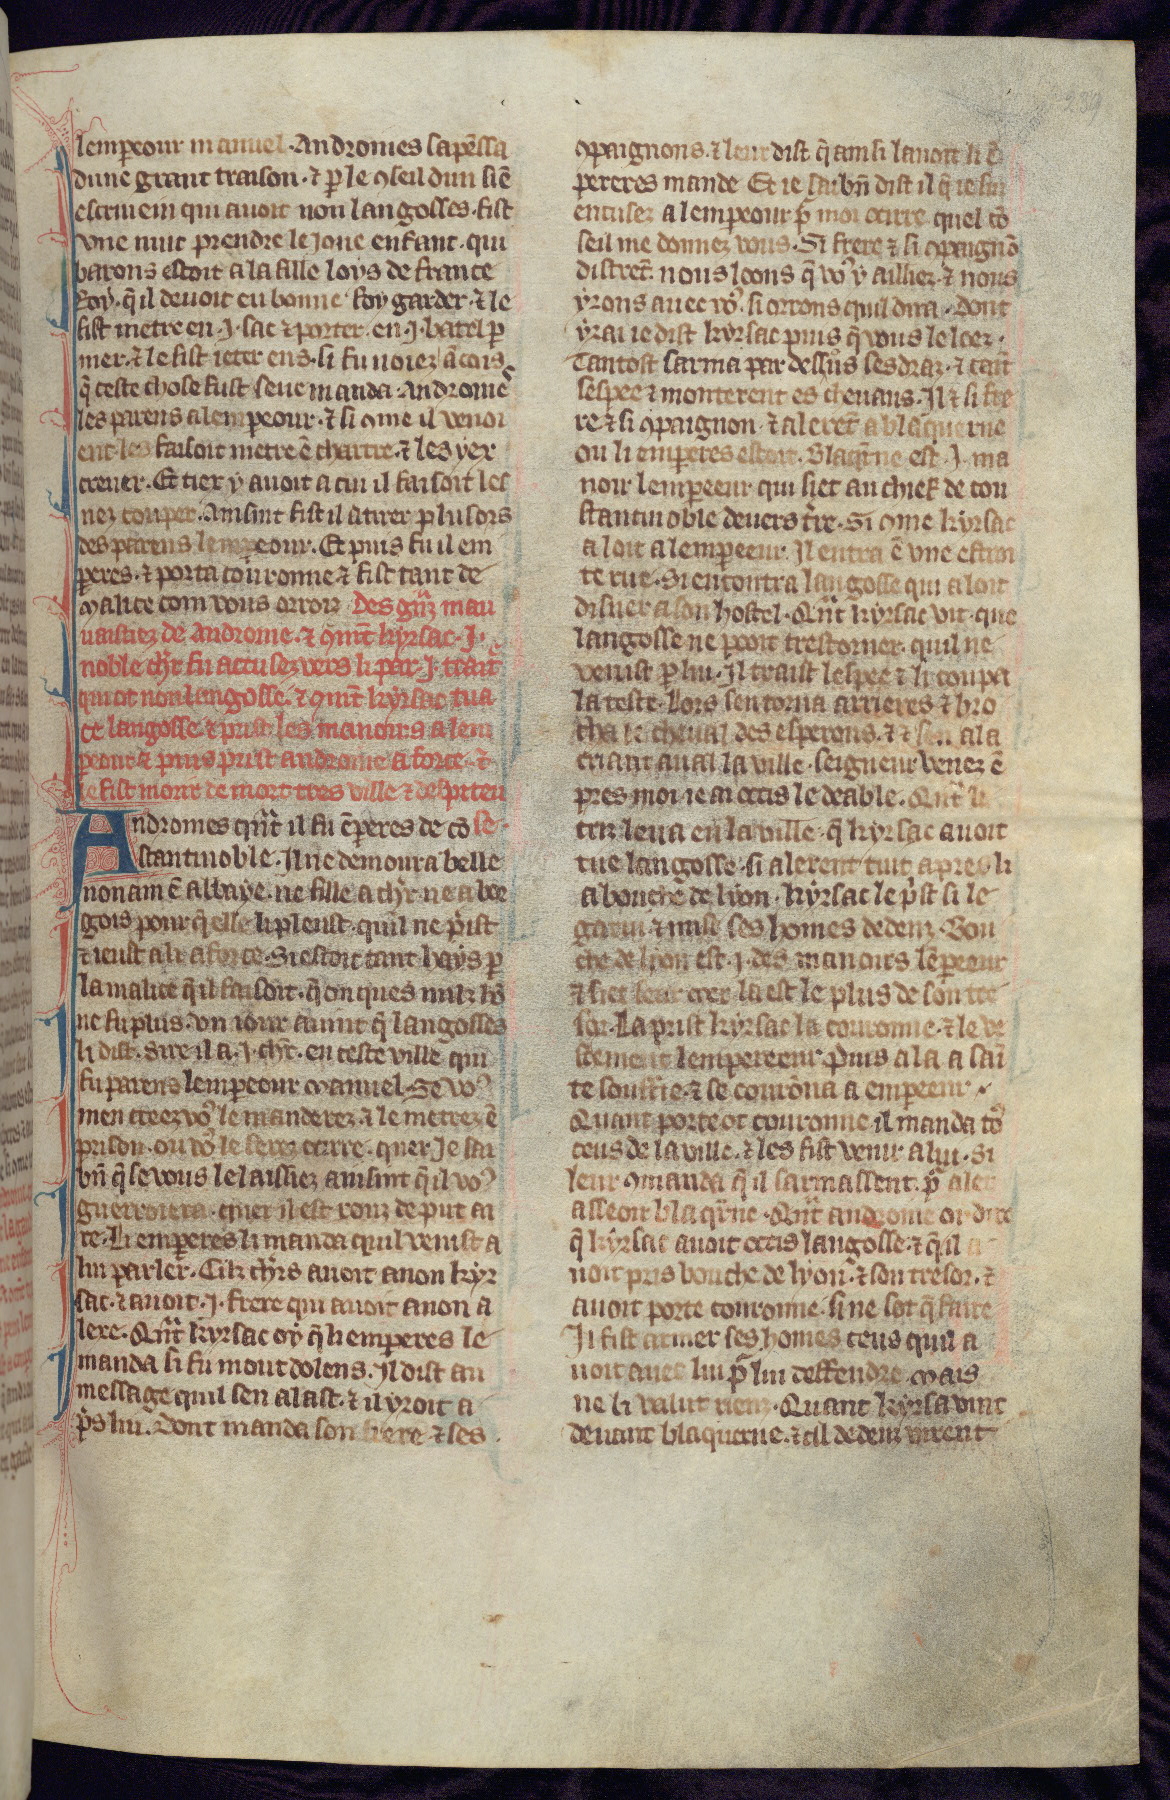 239
lemp̲eour manuel. Andromes sapēssa
dune grant traison. ⁊ p̲ le ꝯseil dun siē
escriuein qui auoit non langosses. fist
vne nuit prendre le Joue enfant. qui
barons estoit a la fille loys de france
Roy. q̄ il deuoit en bonne foy garder. ⁊ le
fist metre en .J. sac ⁊ porter. en .J. batel p̲
mer. ⁊ le fist ieter ens. si fu noiez. ācois
q̄ ceste chose fust seue manda. Andromes
les parens a lemp̲eour. ⁊ si ꝯme il venoi
ent. les faisoit metre ē chartre. ⁊ les yex
creuer. Et tiex y auoit a cui il faisoit les
nez couper. Ainsint fist il atirer p̲lusors
des parens lemp̲eour. Et puis fu il em
p̲eres. ⁊ porta couronne ⁊ fist tant de
malice com vous orrois. Des gn̄z mau
uaistiez de Andromē. ⁊ qm̄t kyrsac .J.
noble chr̄ fu accusez vers li par .J. trait̄
qui ot non langosse. ⁊ qm̄t kyrsac tua
ce langosse ⁊ prist les manoirs a lem
p̲eour ⁊ puis prist andromē a force. ⁊
le fist morir de mort tres ville ⁊ despiteu
Andromes qn̄t il fu ēp̲eres de cō se.
stantinoble. Jl ne demoura belle
nonain ē albaye. ne fille a chr̄. ne a bor
gois pour q̄ elle li pleust. quil ne p̓ist
⁊ ieust a li a force. Si estoit tant hays p̲
la malice q̄ il faisoit. q̄ onques nulz hō
ne fu plus. Vn iour auint q̄ langosses
li dist. Sire il a .J. chr̄. en ceste ville qui
fu parens lemp̲eour manuel. Se voꝰ
men creez voꝰ le manderez. ⁊ le metrez ē
prison. ou voꝰ le ferez ocirre. quer Je sai
bn̄ q̄ se vous le laissiez ainsint q̄ il voꝰ
guerroiera. quer il est rouz de put ai
re. Li emp̲eres li manda quil venist a
lui parler. Cilz chr̄s auoit a non kyr
sac. ⁊ auoit .J. frere qui auoit a non a
lexe. Qn̄t kyrsac oÿ q̄ li emp̲eres le
manda si fu mout dolens. Jl dist au
message quil sen alast. ⁊ il yroit a
p̓s lui. Dont manda son frere ⁊ ses
ꝯpaignons. ⁊ leur dist q̄ ainsi lauoit li ē
p̲ereres mande. Et ie sai bn̄ dist il q̄ ie sui
encusez a lemp̲eour p̲ moi ocirre. quel cō
seil me donnez vous. Si frere ⁊ si ꝯpaignō
distrēt. nous loons q̄ voꝰ y ailliez. ⁊ nous
yrons auec voꝰ. si orrons quil dira. Dont
yrai ie dist kyrsac puis q̄ vous le loez.
Tantost sarma par dessus ses draz. ⁊ cait̄
sespee ⁊ monterent es cheuaus. Jl ⁊ si fre
re ⁊ si ꝯpaignon. ⁊ alerēt a blaquerne
ou li emp̲eres estoit. Blaq̄rne est .J. ma
noir lemp̲eeur qui siet au chief de con
stantinoble deuers t̓re. Si ꝯme kyrsac
aloit a lemp̲eeur. Jl entra ē vne estroi
te rue. Si encontra langosse qui aloit
disner a son hostel. Qn̄t kyrsac vit. que
langosse ne pooit trestorner. quil ne
venist p̲ lui. Jl traist lespee ⁊ li coupa
la teste. Lors sen torna arrieres ⁊ bro
cha le cheual des esperons. ⁊ sen ala
criant aual la ville. seigneur venez ē
pres moi ie ai ocis le deable. Qn̄t li
criz leua en la ville. q̄ kyrsac auoit
tue langosse. si alerent tuit apres li
a bouche de lyon. kyrsac le p̓st si le
garni ⁊ mist ses homes dedenz. Bou
che de lyon est .J. des manoirs lēp̲eeur
la est le plus de son tre
sor. La prist kyrsac la couronne. ⁊ le ve
stement lempereeur. Puis ala a sai
te souffie. ⁊ se courōna a emp̲eeur.
Quant porte ot couronne il manda tō
ceus de la ville. ⁊ les fist venir a lui. Si
leur ꝯmanda q̄ il sarmassent. p̲ aler
asseoir blaq̄rne. Qn̄t andromē oi dire
q̄ kyrsac auoit ocis langosse. ⁊ q̄ il a
uoit pris bouche de lyon. ⁊ son tresor. ⁊
auoit porte couronne. si ne sot q̄ faire
Jl fist armer ses homes ceus quil a
uoit auec lui p̲ lui deffendre. mais
ne li valut riens. Quant kyrsa vint
deuant blaquerne. ⁊ cil dedenz virent